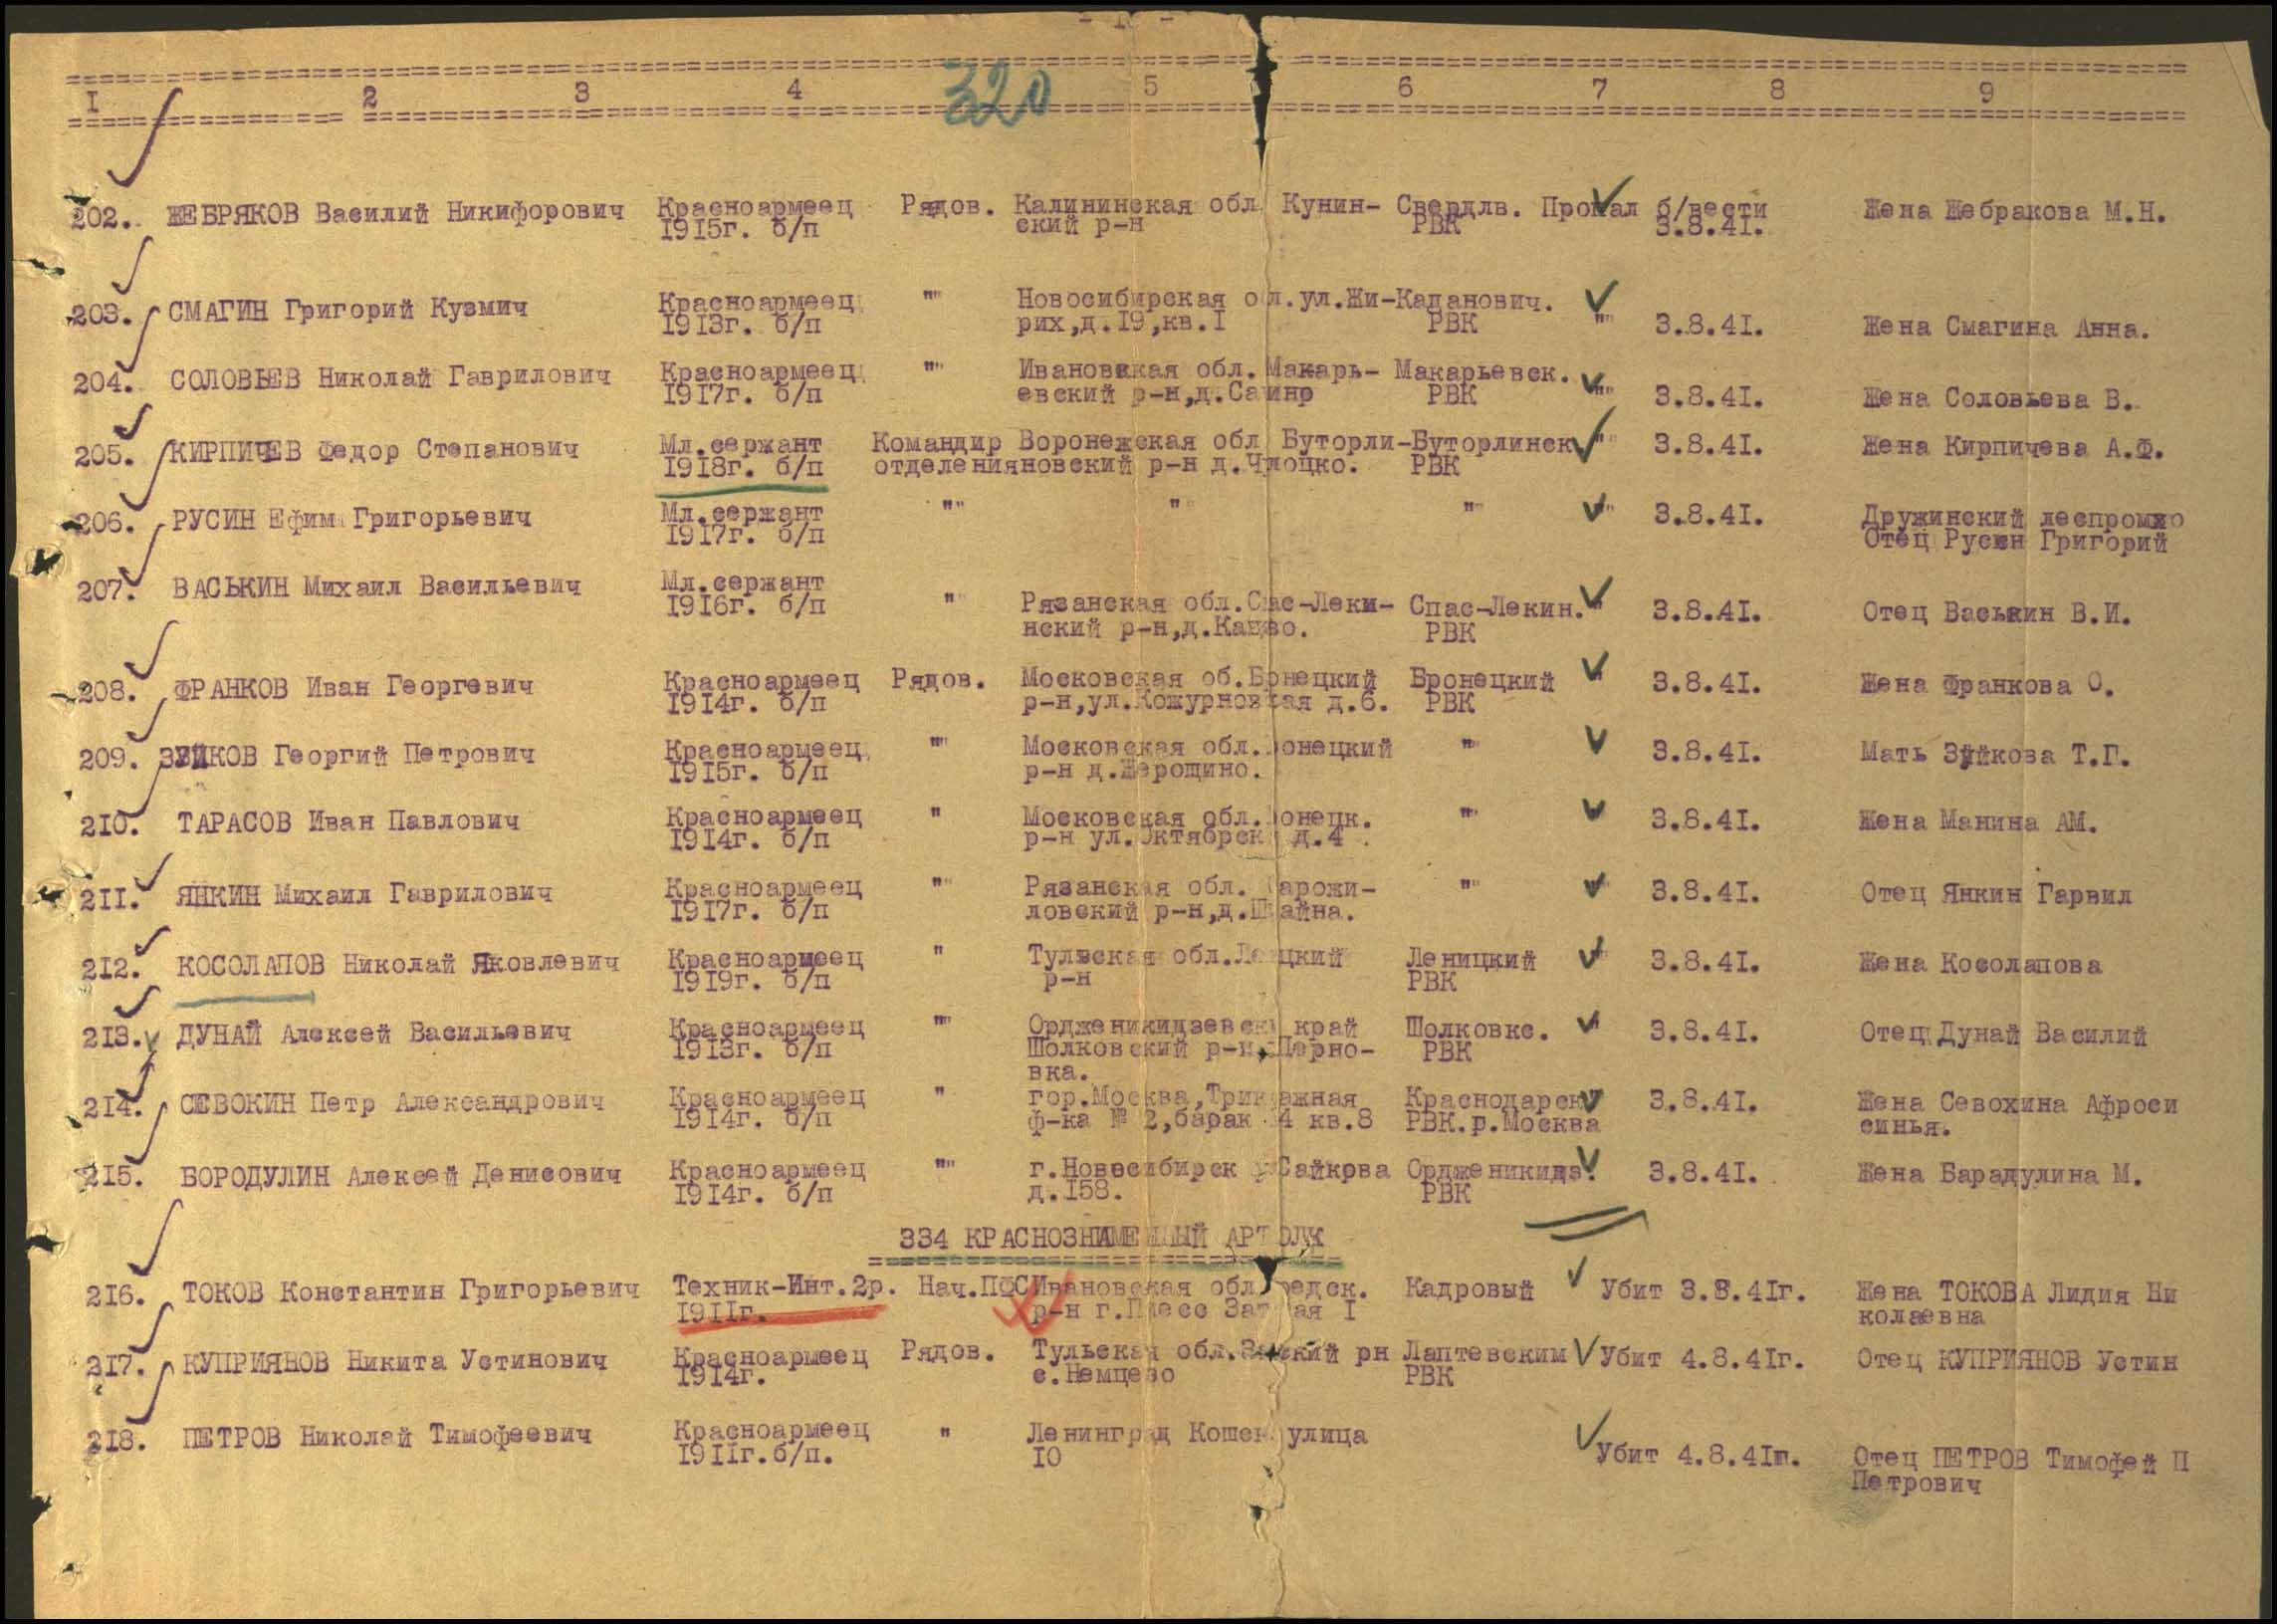 I 2 3 4 320 5 6 7 8 9
202. ЖЕБРЯКОВ Василий Никифорович Красноармеец Рядов. Калининская обл Кунин- Свердлв. Пропал б/вести Жена Жебракова М.Н.
1915г. б/п ский р-н РВК 3.8.41.
203. СМАГИН Григорий Кузмич Красноармеец "" Новосибирская о л.ул.Жи-Каганович.
1913г. б/п рих,д.19,кв.I РВК "" 3.8.41. Жена Смагина Анна.
204. СОЛОВЬЕВ Николай Гаврилович Красноармеец "" Ивановская обл. Макарь- Макарьевск.
1917г. б/п евский р-н,д. РВК "" 3.8.41. Жена Соловьева В.
205. КИРПИЧЕВ Федор Степанович Мл.сержант Командир Воронежская обл Буторли-Буторлинск "" 3.8.41. Жена Кирпичева А.Ф.
1918г. б/п отделенияновский р-н д. РВК
206. РУСИН Ефим Григорьевич Мл.сержант "" "" "" "" 3.8.41. Дружинский леспромхо
1917г. б/п Отец Русин Григорий
207. ВАСЬКИН Михаил Васильевич Мл.сержант
1916г. б/п " Рязанская обл.Спас-Леки- Спас-Лекин. " 3.8.41. Отец Васькин В.И.
нский р-н,д. РВК
208. ФРАНКОВ Иван Георгевич Красноармеец Рядов. Московская об.Бронецкий Бронецкий " 3.8.41. Жена Франкова О.
1914г. б/п р-н,ул.Кожурновская д.6. РВК
209. ЗУЙКОВ Георгий Петрович Красноармеец "" Московская обл. онецкий "" 3.8.41. Мать Зуйкова Т.П.
1915г. б/п р-н д.Жерощино.
210. ТАРАСОВ Иван Павлович Красноармеец " Московская обл. онецк. "" 3.8.41. Жена Манина АМ.
1914г. б/п р-н ул.Октябрск д.4
211. ЯНКИН Михаил Гаврилович Красноармеец "" Рязанская обл. арожи- "" 3.8.41. Отец Янкин Гарвил
1917г. б/п ловский р-н,д.
212. КОСОЛАПОВ Николай Яковлевич Красноармеец " Тульская обл. Леницкий 3.8.41. Жена Косолапова
1919г. б/п р-н РВК
213. ДУНАЙ Алексей Васильевич Красноармеец "" Ордженикидзевски край Шолковкс. " 3.8.41. Отец Дунай Василий
1913г. б/п Шолковский р-н, Церно- РВК
вка.
214. СЕВОКИН Петр Александрович Красноармеец " гор.Москва,Трикотажная Краснодарск 3.8.41. Жена Севохина Афроси
1914г. б/п ф-ка № 2,барак 4 кв.8 РВК.р.Москва синья.
215. БОРОДУЛИН Алексей Денисович Красноармеец "" г.Новосибирск Сайкова Ордженикидз. 3.8.41. Жена Барадулина М.
1914г. б/п д.158. РВК
334 КРАСНОЗНАМЕННЫЙ АРТПОЛК
216. ТОКОВ Константин Григорьевич Техник-Инт.2р. Нач.ПФСИвановская обл редск. Кадровый Убит 3.8.41г. Жена ТОКОВА Лидия Ни
1911г. р-н г.Плесс I колаевна
217. КУПРИЯНОВ Никита Устинович Красноармеец Рядов. Тульская обл. рн Лаптевским Убит 4.8.41г. Отец КУПРИЯНОВ Устин
1914г. с.Немцево РВК
218. ПЕТРОВ Николай Тимофеевич Красноармеец " Ленинград улица
1911г.б/п. 10 Убит 4.8.41г. Отец ПЕТРОВ Тимофей П
Петрович